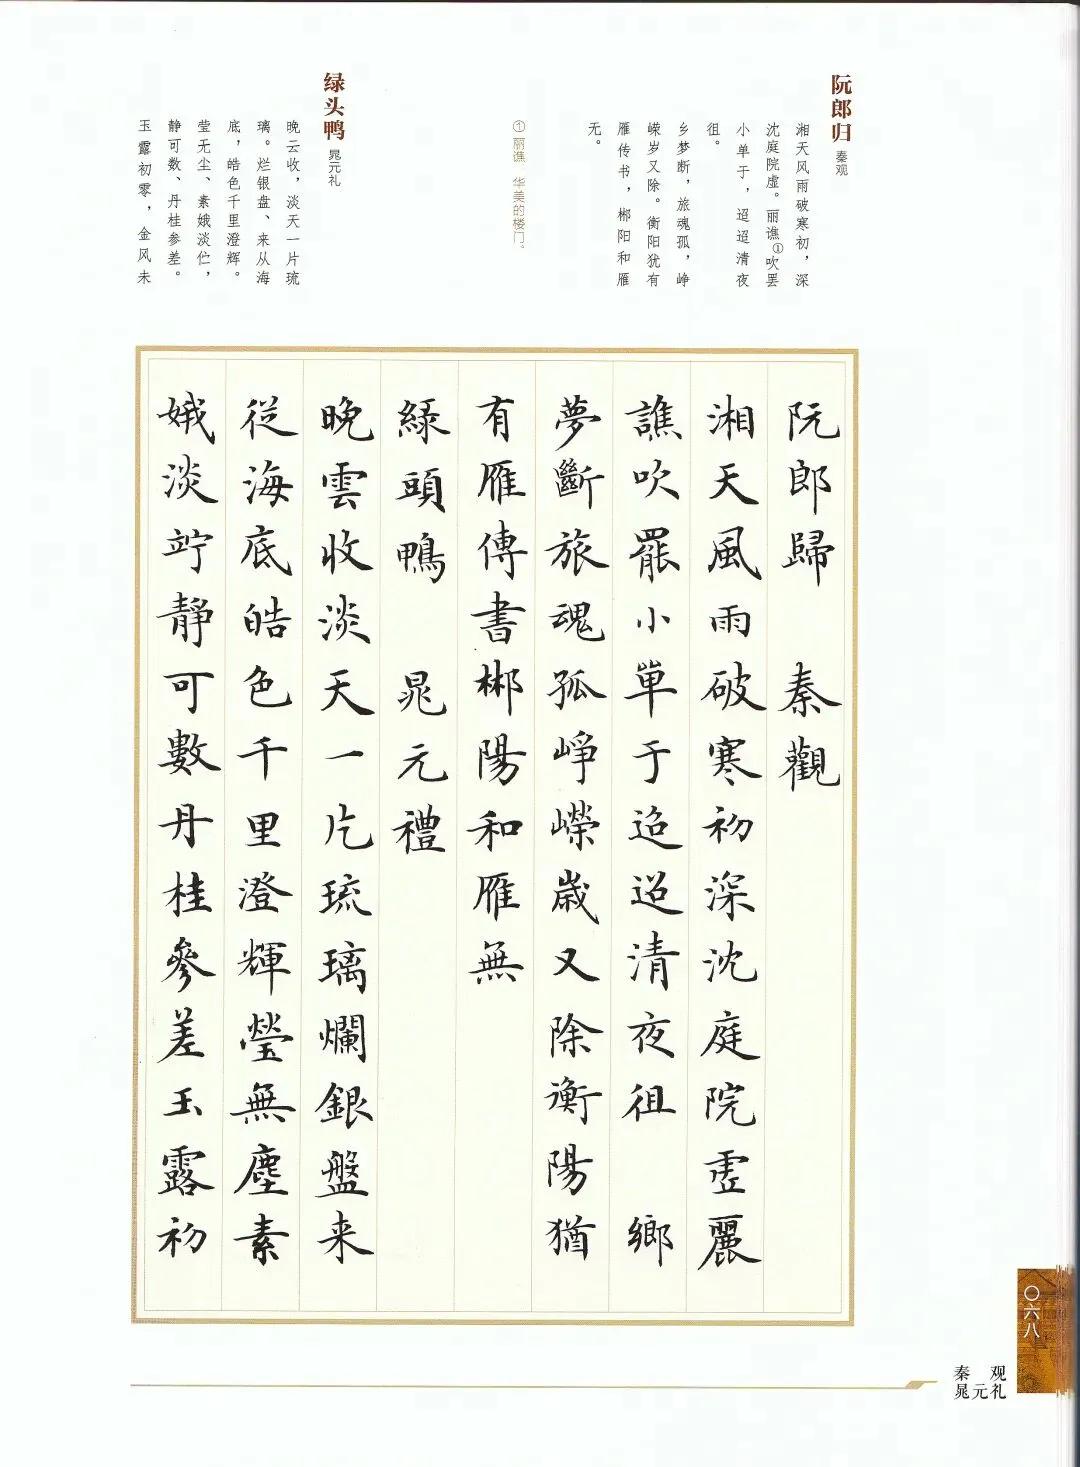 阮郎归
秦观
湘天风雨破寒初，深
沈庭院虚。丽谯①吹罢
小单于，迢迢清夜
徂。
乡梦断，旅魂孤，峥
嵘岁又除。衡阳犹有
雁传书，郴阳和雁
无。
①丽谯 华美的楼门。
绿头鸭
晁元礼
晚云收，淡天一片琉
璃。烂银盘、来从海
底，皓色千里澄辉。
莹无尘、素娥淡伫，
静可数、丹桂参差。
玉露初零，金风未
阮郎歸 秦觀
湘天風雨破寒初深沈庭院虚麗
譙吹罷小單于迢迢清夜徂 鄉
夢斷旅魂孤崢嶸歲又除衡陽猶
有雁傳書郴陽和雁無
綠頭鴨 晁元禮
晚雲收淡天一片琉璃爛銀盤来
從海底皓色千里澄輝瑩無塵素
娥淡竚靜可數丹桂參差玉露初
〇六八
秦观
晁元礼